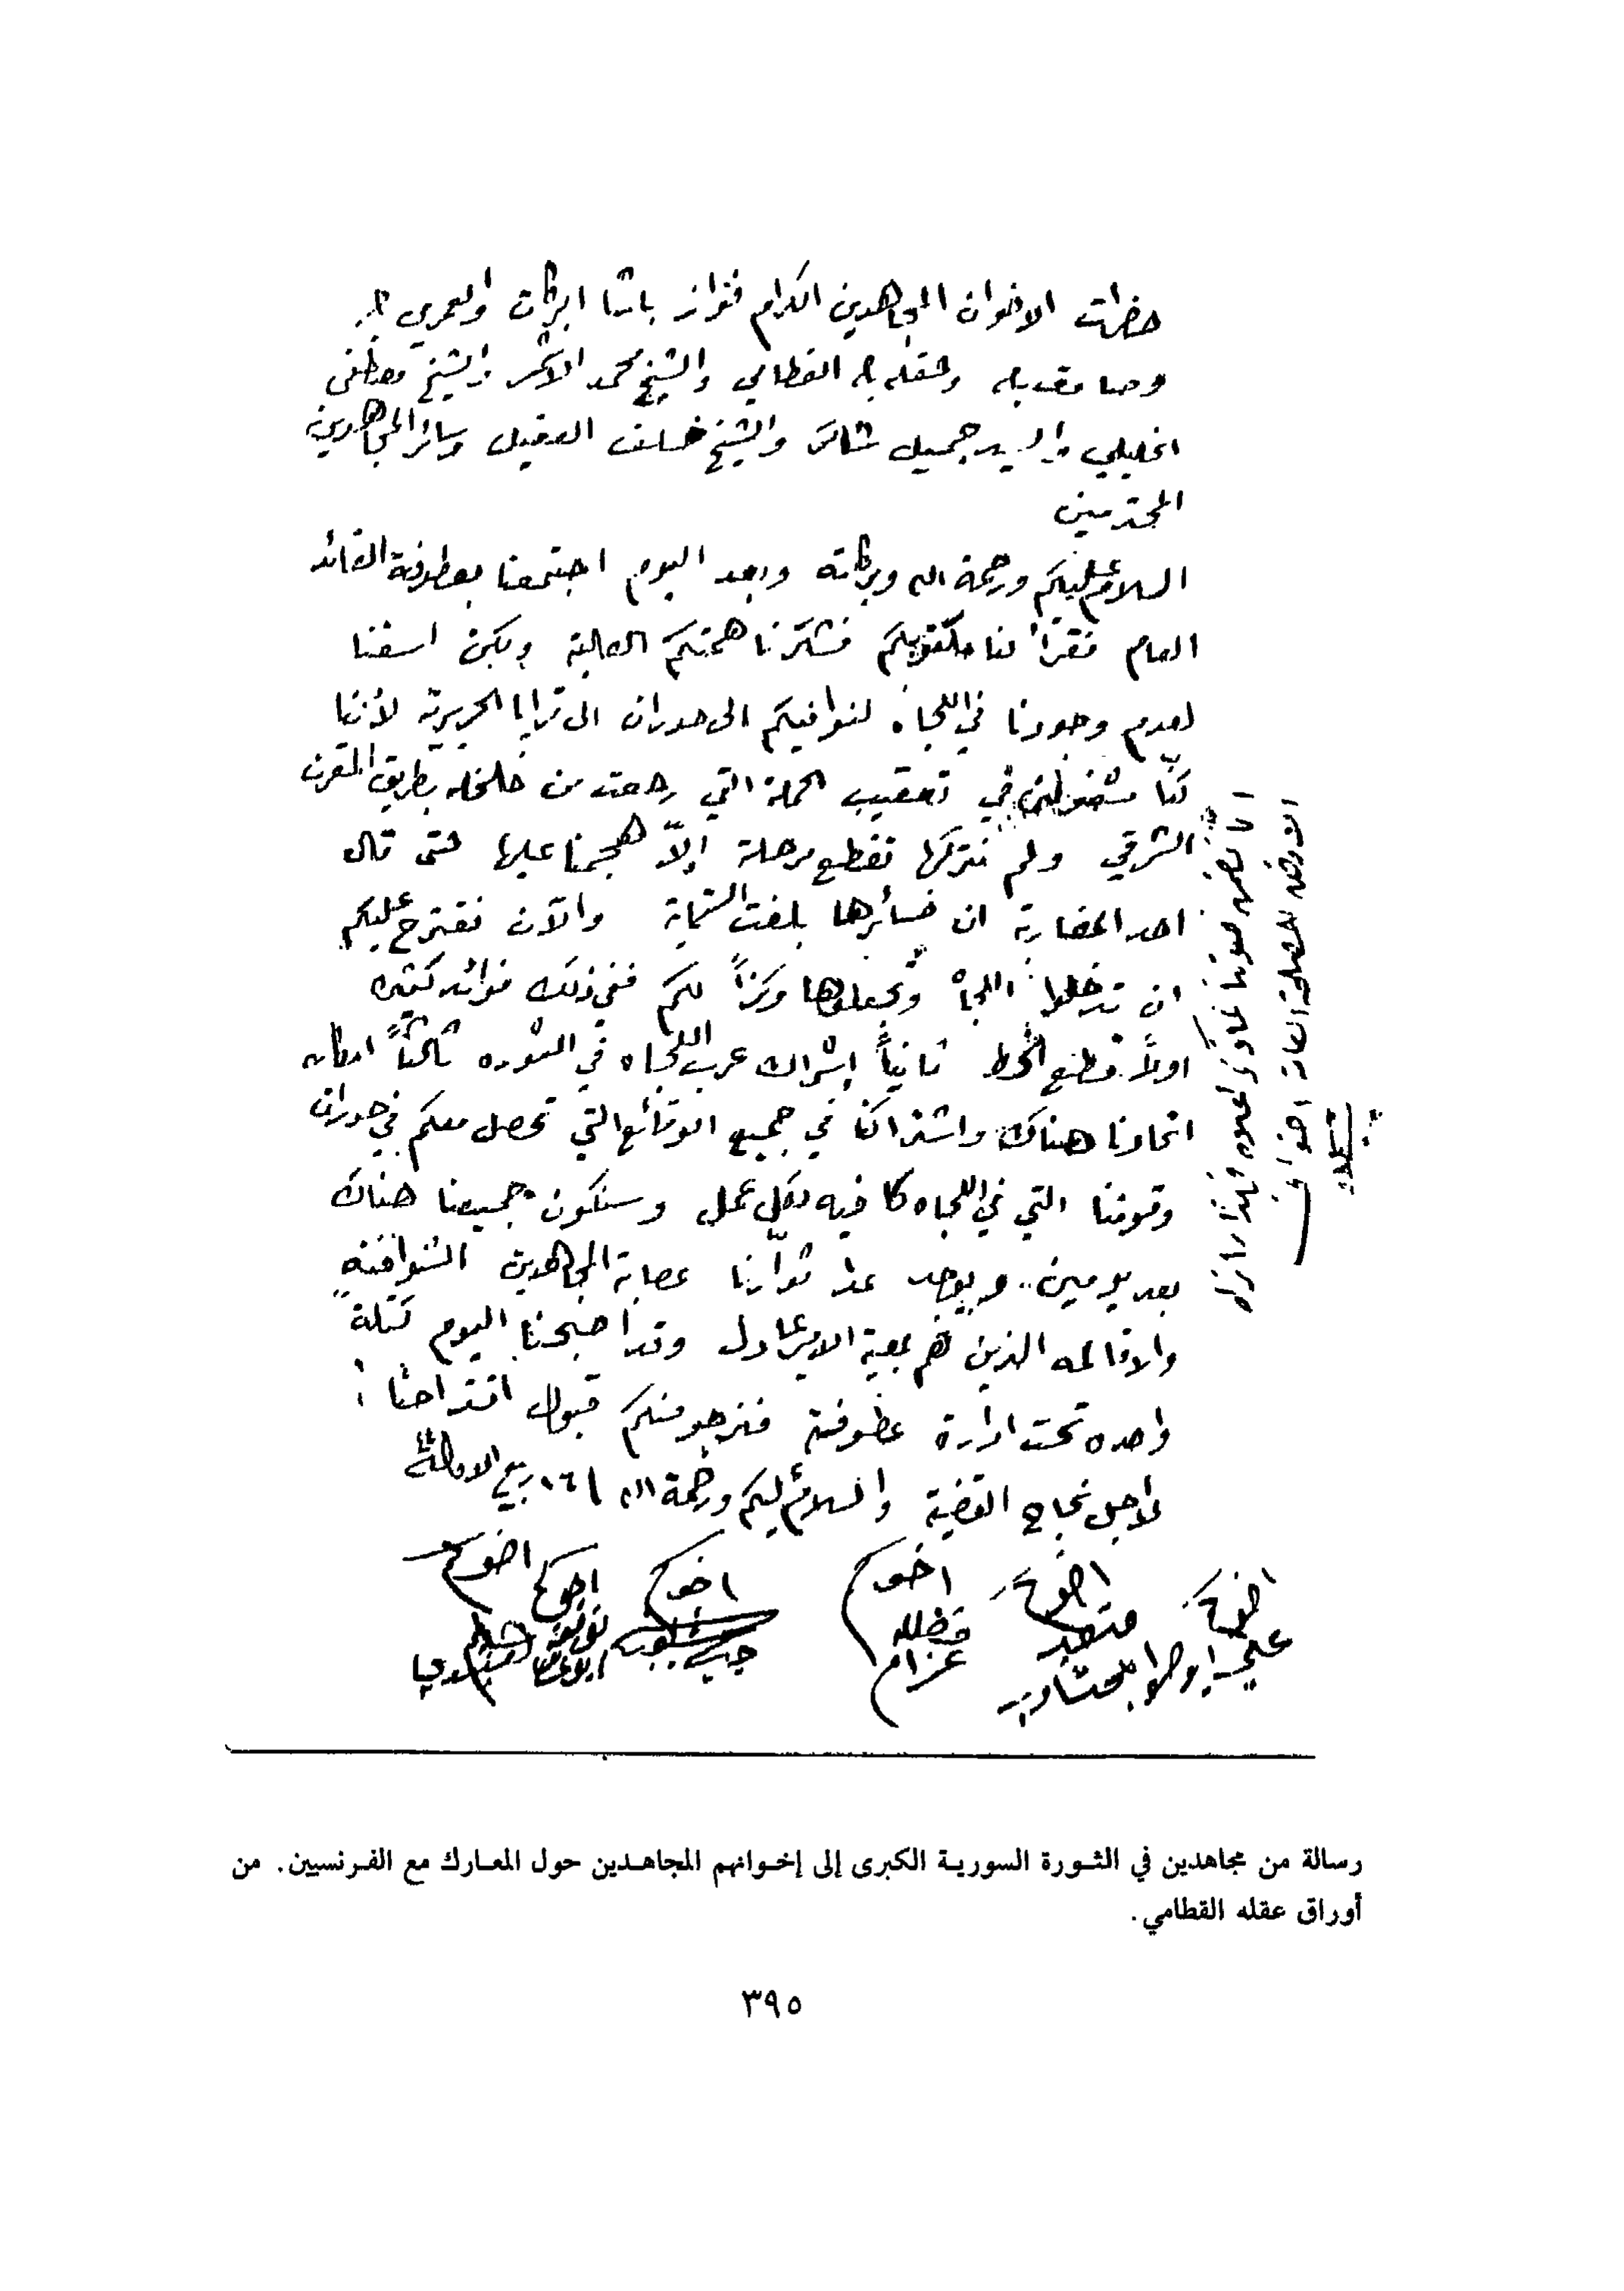 حضرات الاخوان المجاهدين الكرام فواز باشا البركات والعمري بك
وعقله بك القطامي والشيخ محمد الاشمر والشيخ مصطفى
الخليلي والسيد جميل شاكر والشيخ خلف العقيل وسائر المجاهدين
المحترمين
السلام عليكم ورحمة الله وبركاته وبعد اليوم اجتمعنا بعطوفة القائد
العام فقرأ لنا مكتوبكم فشكرنا همتكم العالية ولكن اسفنا
لعدم وجودنا في اللجاه لنوافيكم الى حوران الى قرايا الحريرية لأننا
كنّا مشغولين في تعقيب الحملة التي رجعت من خلخله بطريق المقرن
الشرقي ولم نتركها تقطع مرحلة إلاّ هجمنا عليها حتى قال
احد المغاربة ان خسائرها بلغت الستماية والآن نقترح عليكم
ان تدخلوا اللجأه وتجعلوها مركزاً لكم ففي ذلك فوائد كثيره
اولاً قطع الخط ثانياً إشراك عرب اللجاه في الثوره ثالثاً امكان
اتحادنا هناك واشتراكنا في جميع الوقائع التي تحصل معكم في حوران
وقوتنا التي في اللجاه كافيه لكل عمل وسنكون جميعنا هناك
بعد يومين ويوجد عدا ثوّارنا عصابة المجاهدين
الذين هم بمعية الامير عادل وقد اصبحنا اليوم كتلة
واحده تحت ادارة عطوفته فنرجو منكم قبول اقتراحنا
لاجل نجاح القضية والسلام عليكم ورحمة الله ١٦ ربيع الاول
اخوكم اخوكم اخوكم اخوكم اخوكم اخوكم
علي متعب فضل الله
عزام
رسالة من مجاهدين في الثورة السورية الكبرى إلى إخوانهم المجاهدين حول المعارك مع الفرنسيين. من
أوراق عقله القطامي.
٣٩٥